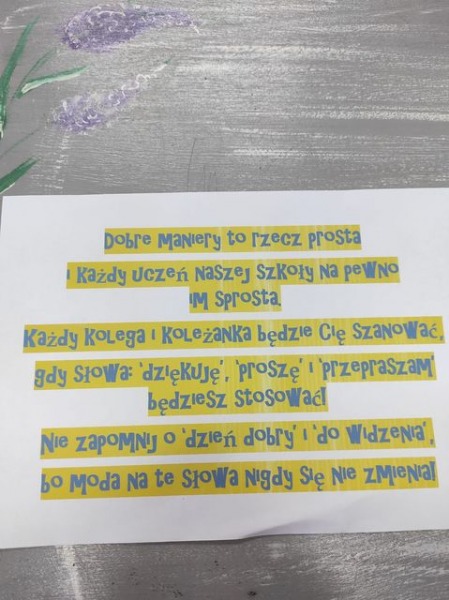 Dobre maniery to rzecz prosta
i każdy uczeń naszej szkoły na pewno
im sprosta.
Każdy kolega i koleżanka będzie Cię szanować,
gdy słowa: 'dziękuję', 'proszę' i 'przepraszam'
będziesz stosować!
Nie zapomnij o 'dzień dobry' i 'do widzenia',
bo moda na te słowa nigdy się nie zmienia!